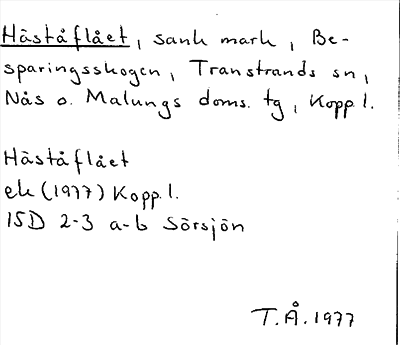 Håståflået, sank mark, Be-
sparingsskogen, Transtrands sn,
Nås o. Malungs doms. tg, Kopp. l.
Håståflået
ek (1977) Kopp. l.
15D 2-3 a-b Sörsjön
T.Å. 1977